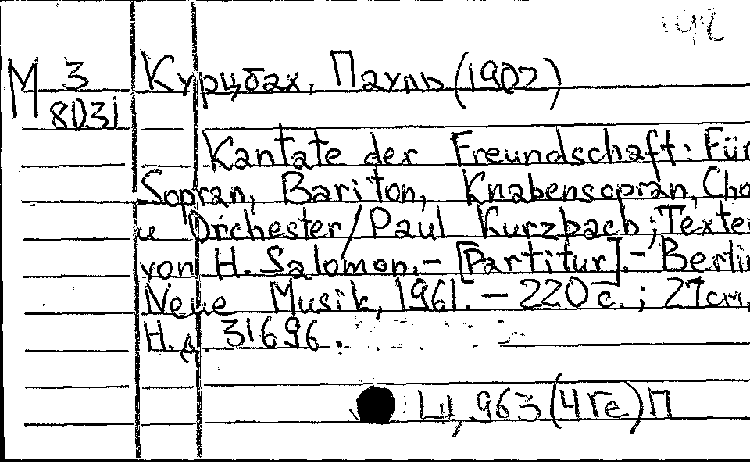 М 3/8031
Курцбах, Пауль (1902)
Kantate der Freundschaft: Für
Sopran, Bariton, Knabensopran, Cho
u Orchester / Paul Kurzbach; Texte
von H. Salomon. – [Partitur]. – Berlin
Neue Musik, 1961. – 220 с.; 27 cm.
Н.д. 31696.
Ц,963(4Ге)П